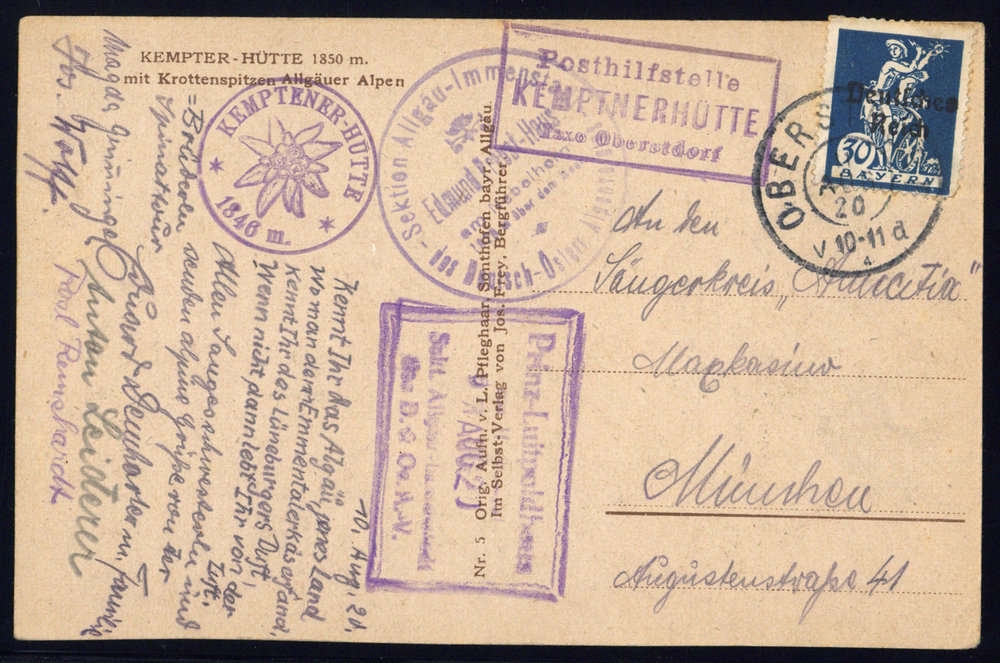 KEMPTER-HÜTTE 1850 m.
mit Krottenspitzen Allgäuer Alpen
KEMPTENER-HÜTTE
1846 m.
Sektion Allgäu-Immenstadt
Edmund-Probst-Haus
am Nebelhorn
über dem
des Deutsch-Österr. Alpenver
Posthilfstelle
KEMPTNERHÜTTE
Taxe Oberstdorf
Deutsches
Reich
30
BAYERN
OBERS
20
V 10-11 a
Prinz-Luitpoldhaus
Sekt. Allgäu-Immenstadt
des D. Ö. A.V.
Nr. 5 Orig. Aufn. v. L. Pfleghaar, Sonthofen bayr. Allgäu
Im Selbst-Verlag von Jos. Frey, Bergführer,
An den
Sängerkreis „Amicitia"
Maxkasino
München
Augustenstraße 41
10. Aug. 20.
Kennt Ihr das Algäu, jenes Land
wo man den Emmentalerkäs erfand,
Kennt Ihr des Lüneburgers Duft,
Wenn nicht, dann lebt Ihr von der
Luft.
Allen Sangesschwestern und
-Brüdern senden alpine Grüße von der
Spinatwies
u. Familie
Anton Leiderer
Magda
Jos. Wolf.
Rosl Remshardt